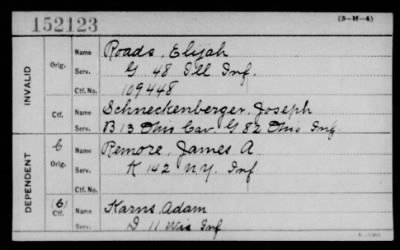 152123
(3-H-4)
INVALID
Orig. Name Roads, Elijah
Serv. G 48 Ill Inf.
Ctf. No. 109448
Ctf. Name Schneckenberger, Joseph
Serv. B 13 Ohio Cav. G 82 Ohio Inf
DEPENDENT
C Orig. Name Remore, James A.
Serv. K 142 N.Y. Inf
Ctf. No.
(6) Ctf. Name Karns, Adam
Serv. D 11 Wis Inf